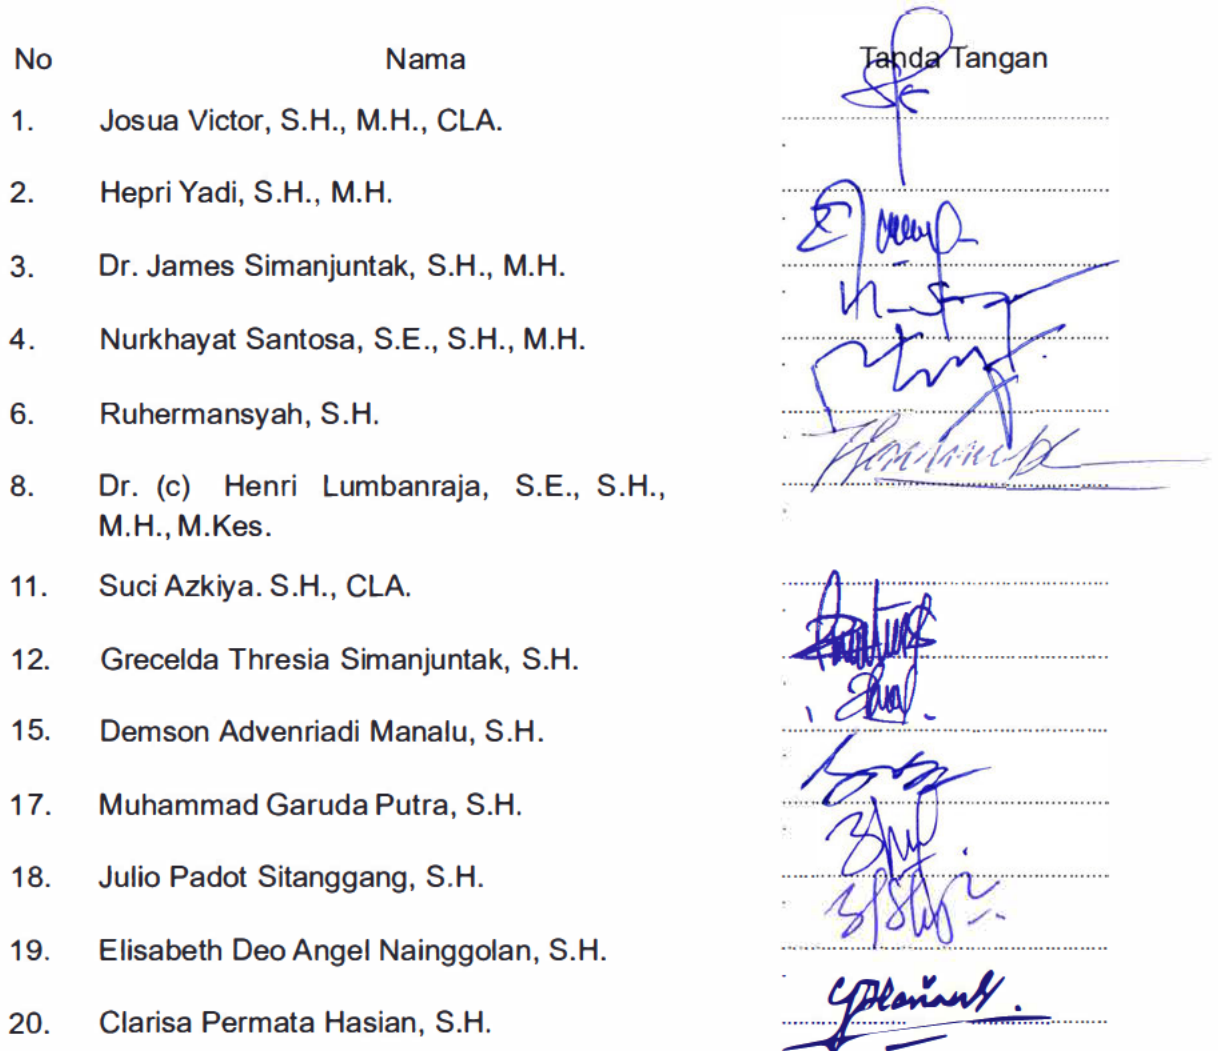 No Nama Tanda Tangan
1. Josua Victor, S.H., M.H., CLA.
2. Hepri Yadi, S.H., M.H.
3. Dr. James Simanjuntak, S.H., M.H.
4. Nurkhayat Santosa, S.E., S.H., M.H.
6. Ruhermansyah, S.H.
8. Dr. (c) Henri Lumbanraja, S.E., S.H.,
M.H., M.Kes.
11. Suci Azkiya. S.H., CLA.
12. Grecelda Thresia Simanjuntak, S.H.
15. Demson Advenriadi Manalu, S.H.
17. Muhammad Garuda Putra, S.H.
18. Julio Padot Sitanggang, S.H.
19. Elisabeth Deo Angel Nainggolan, S.H.
20. Clarisa Permata Hasian, S.H.